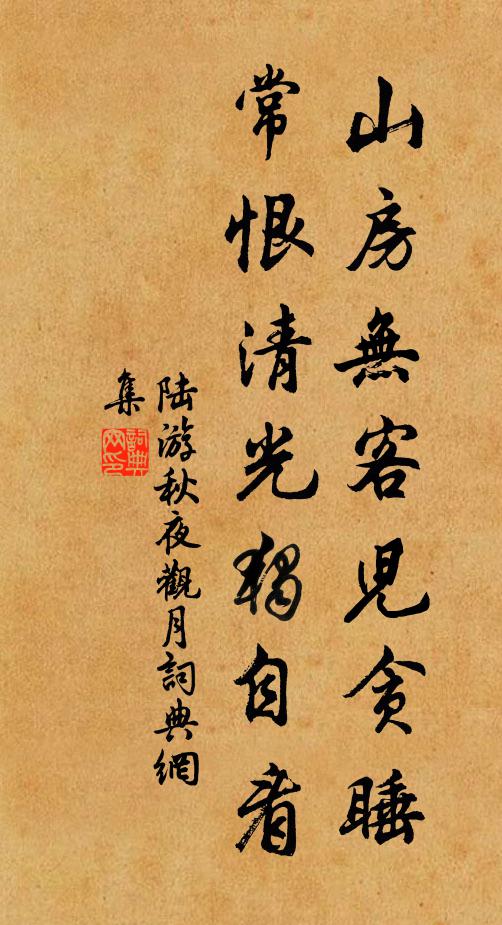 山房無客兒貪睡
常恨清光獨自看
陸游秋夜觀月詞典網
集
詞典
网印